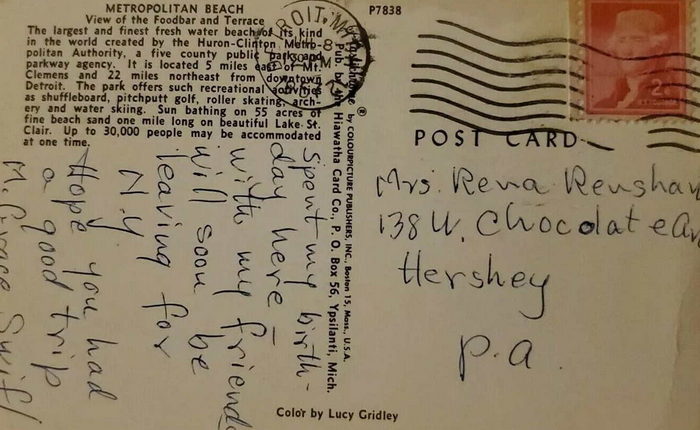 METROPOLITAN BEACH
View of the Foodbar and Terrace
The largest and finest fresh water beach of its kind
in the world created by the Huron-Clinton Metro-
politan Authority, a five county public park and
parkway agency. It is located 5 miles east of Mt.
Clemens and 22 miles northeast from downtown
Detroit. The park offers such recreational activities
as shuffleboard, pitchputt golf, roller skating, arch-
ery and water skiing. Sun bathing on 55 acres of
fine beach sand one mile long on beautiful Lake St.
Clair. Up to 30,000 people may be accommodated
at one time.
P7838
DETROIT, MICH
2¢
by COLOURPICTURE PUBLISHERS, INC., Boston 15, Mass., U.S.A.
Pub. by Hiawatha Card Co., P. O. Box 56, Ypsilanti, Mich.
POST CARD
Spent my birth-
day here –
with my friend
will soon be
leaving for
N.Y
Hope you had
a good trip
M. Grace Swif
Mrs. Rena Renshaw
138 W. Chocolate Av
Hershey
P.a.
Color by Lucy Gridley